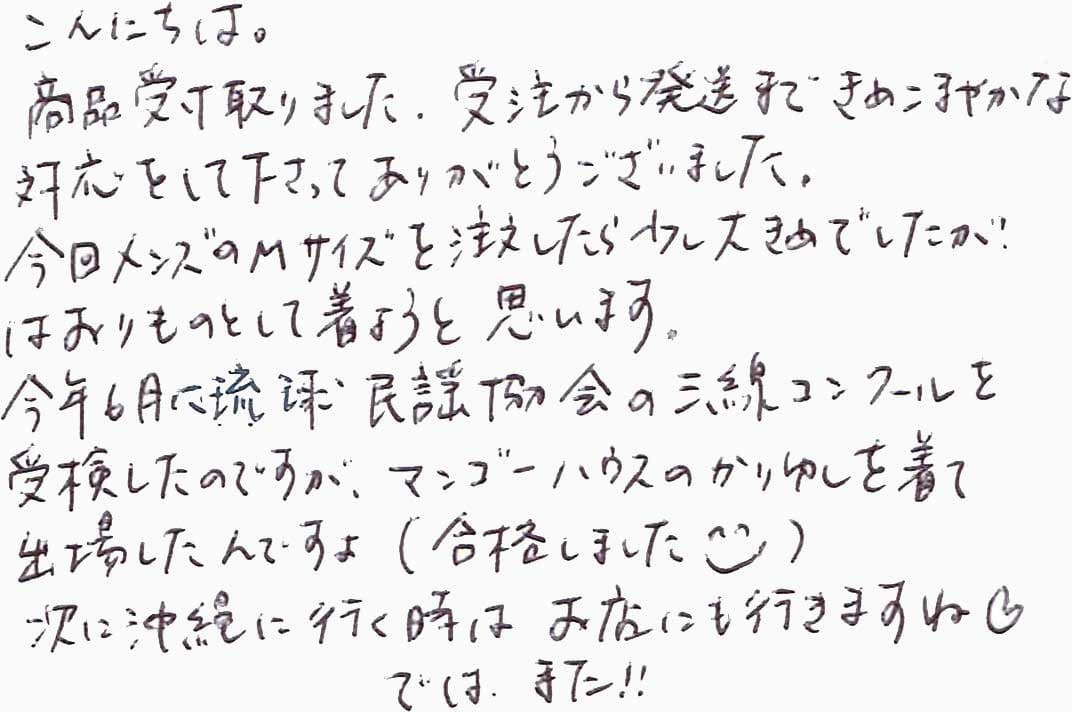 こんにちは。
商品受け取りました. 受注から発送まできめこまやかな
対応をして下さってありがとうございました。
今回メンズのMサイズを注文したら少し大きめでしたが!
はおりものとして着ようと思います。
今年6月に琉球民謡協会の三線コンクールを
受検したのですが、マンゴーハウスのかりゆしを着て
出場したんですよ(合格しました^^)
次に沖縄に行く時はお店にも行きますね
では. また!!